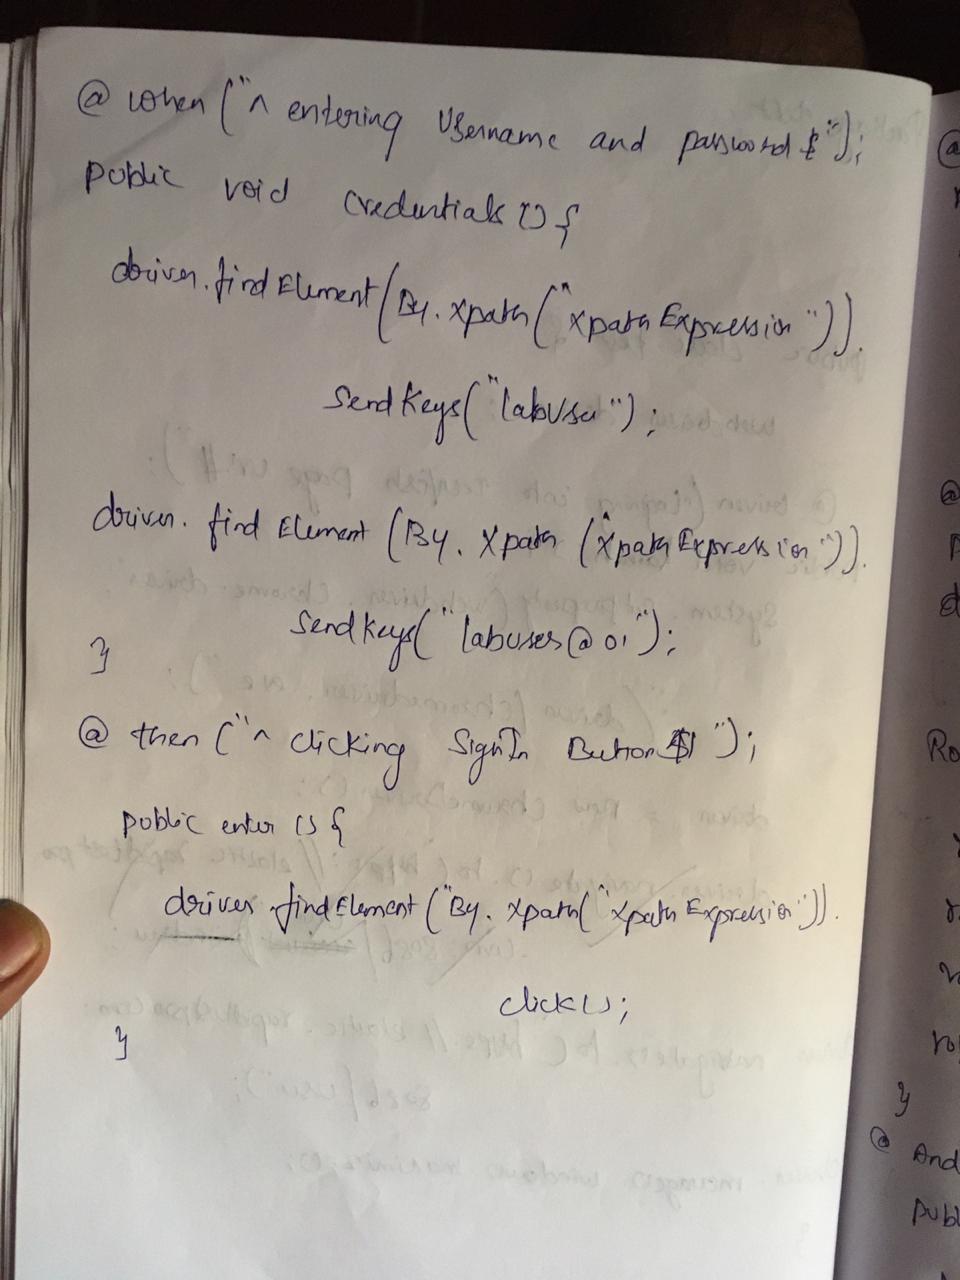 @ when ("^ entering Username and password $");
public void credentials () {
driver. find Element (By. xpath ("xpath Expression")).
Send Keys ("labUser");
driver. find Element (By. Xpath ("xpath Expression")).
Send Keys ("labuser@01");
}
@ then ("^ clicking SignIn Button $");
public enter () {
driver .find Element ("By. xpath ("xpath Expression")).
click ();
}
@
@
d
Ro
}
@ And
publ